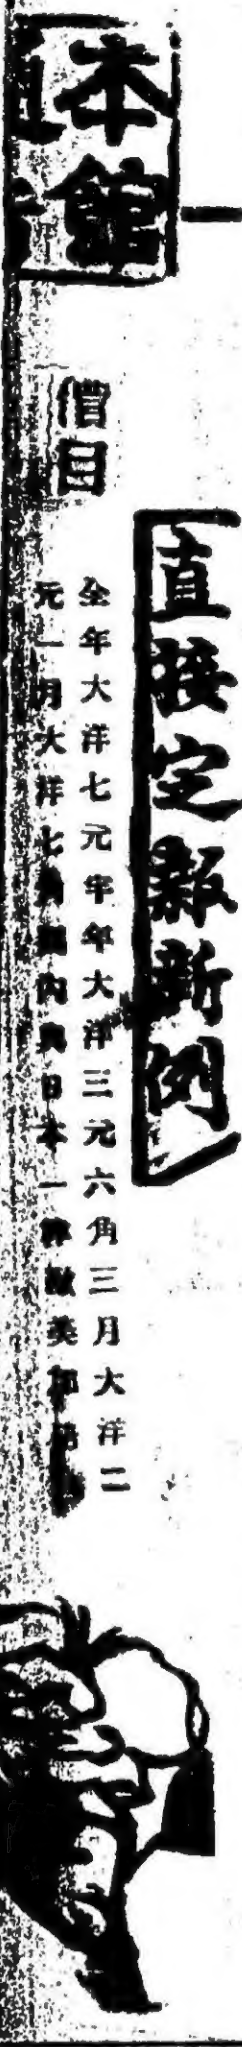 直接定報新例
本館
價目
全年大洋七元半年大洋三元六角三月大洋二
元一月大洋七角國內與日本一律歐美